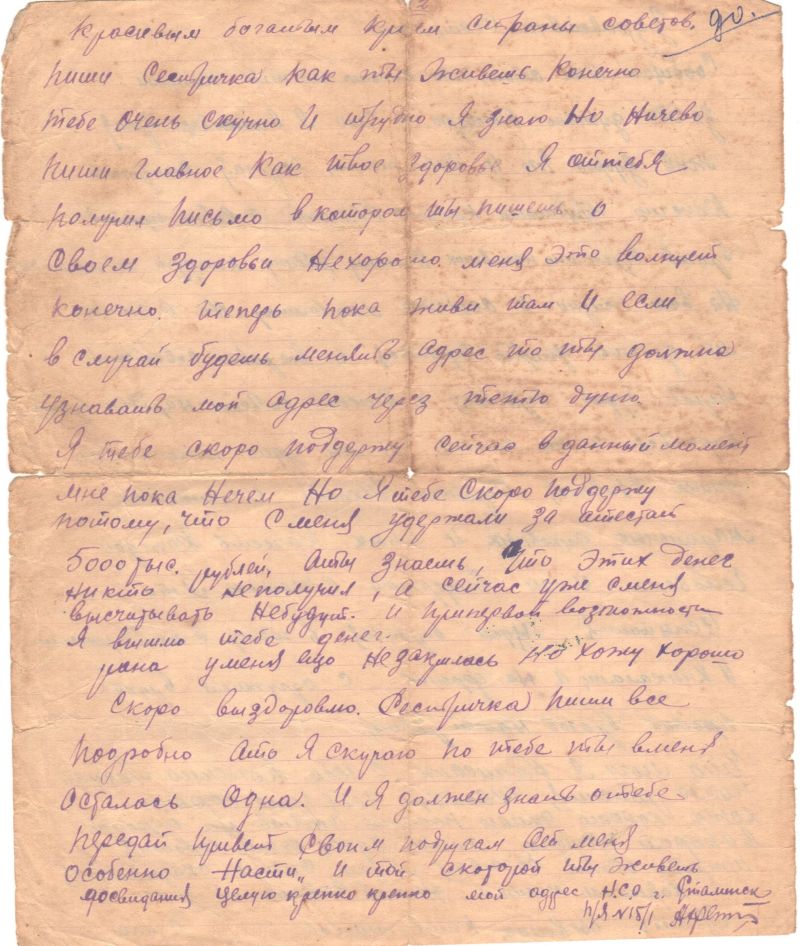 до.
красивым богатым краем страны советов.
пиши Сестричка как ты живешь конечно
тебе очень скучно И трудно Я знаю Но Ничево
пиши главное Как твое здоровье Я оттебя
получил письмо в котором ты пишешь о
Своем здоровьи Нехорошо. меня это волнует
конечно. теперь пока живи там И если
в случай будешь менять адрес то ты должна
узнавать мой адрес через тетю дуню.
Я тебе скоро поддержу сейчас в данный момент
мне пока Нечем Но Я тебе Скоро поддержу
потому, что Сменя удержали за аттестат
5000 тыс. рублей, Аты Знаешь, что этих денег
Никто Неполучил, а сейчас уже Сменя
высчитывать Небудут. И припервой возможности
Я вышлю тебе денег.
рана уменя ещо Незакрылась Но хожу хорошо
Скоро выздоровлю. Сестричка пиши все
подробно Ато Я скучаю по тебе ты вменя
осталась Одна. И Я должен знать отебе
передай привет Своим подругам меня
особенно Насти, И той скоторой ты живешь
досвидания целую крепко крепко мой адрес Н.С.О г.
п/я N15/1